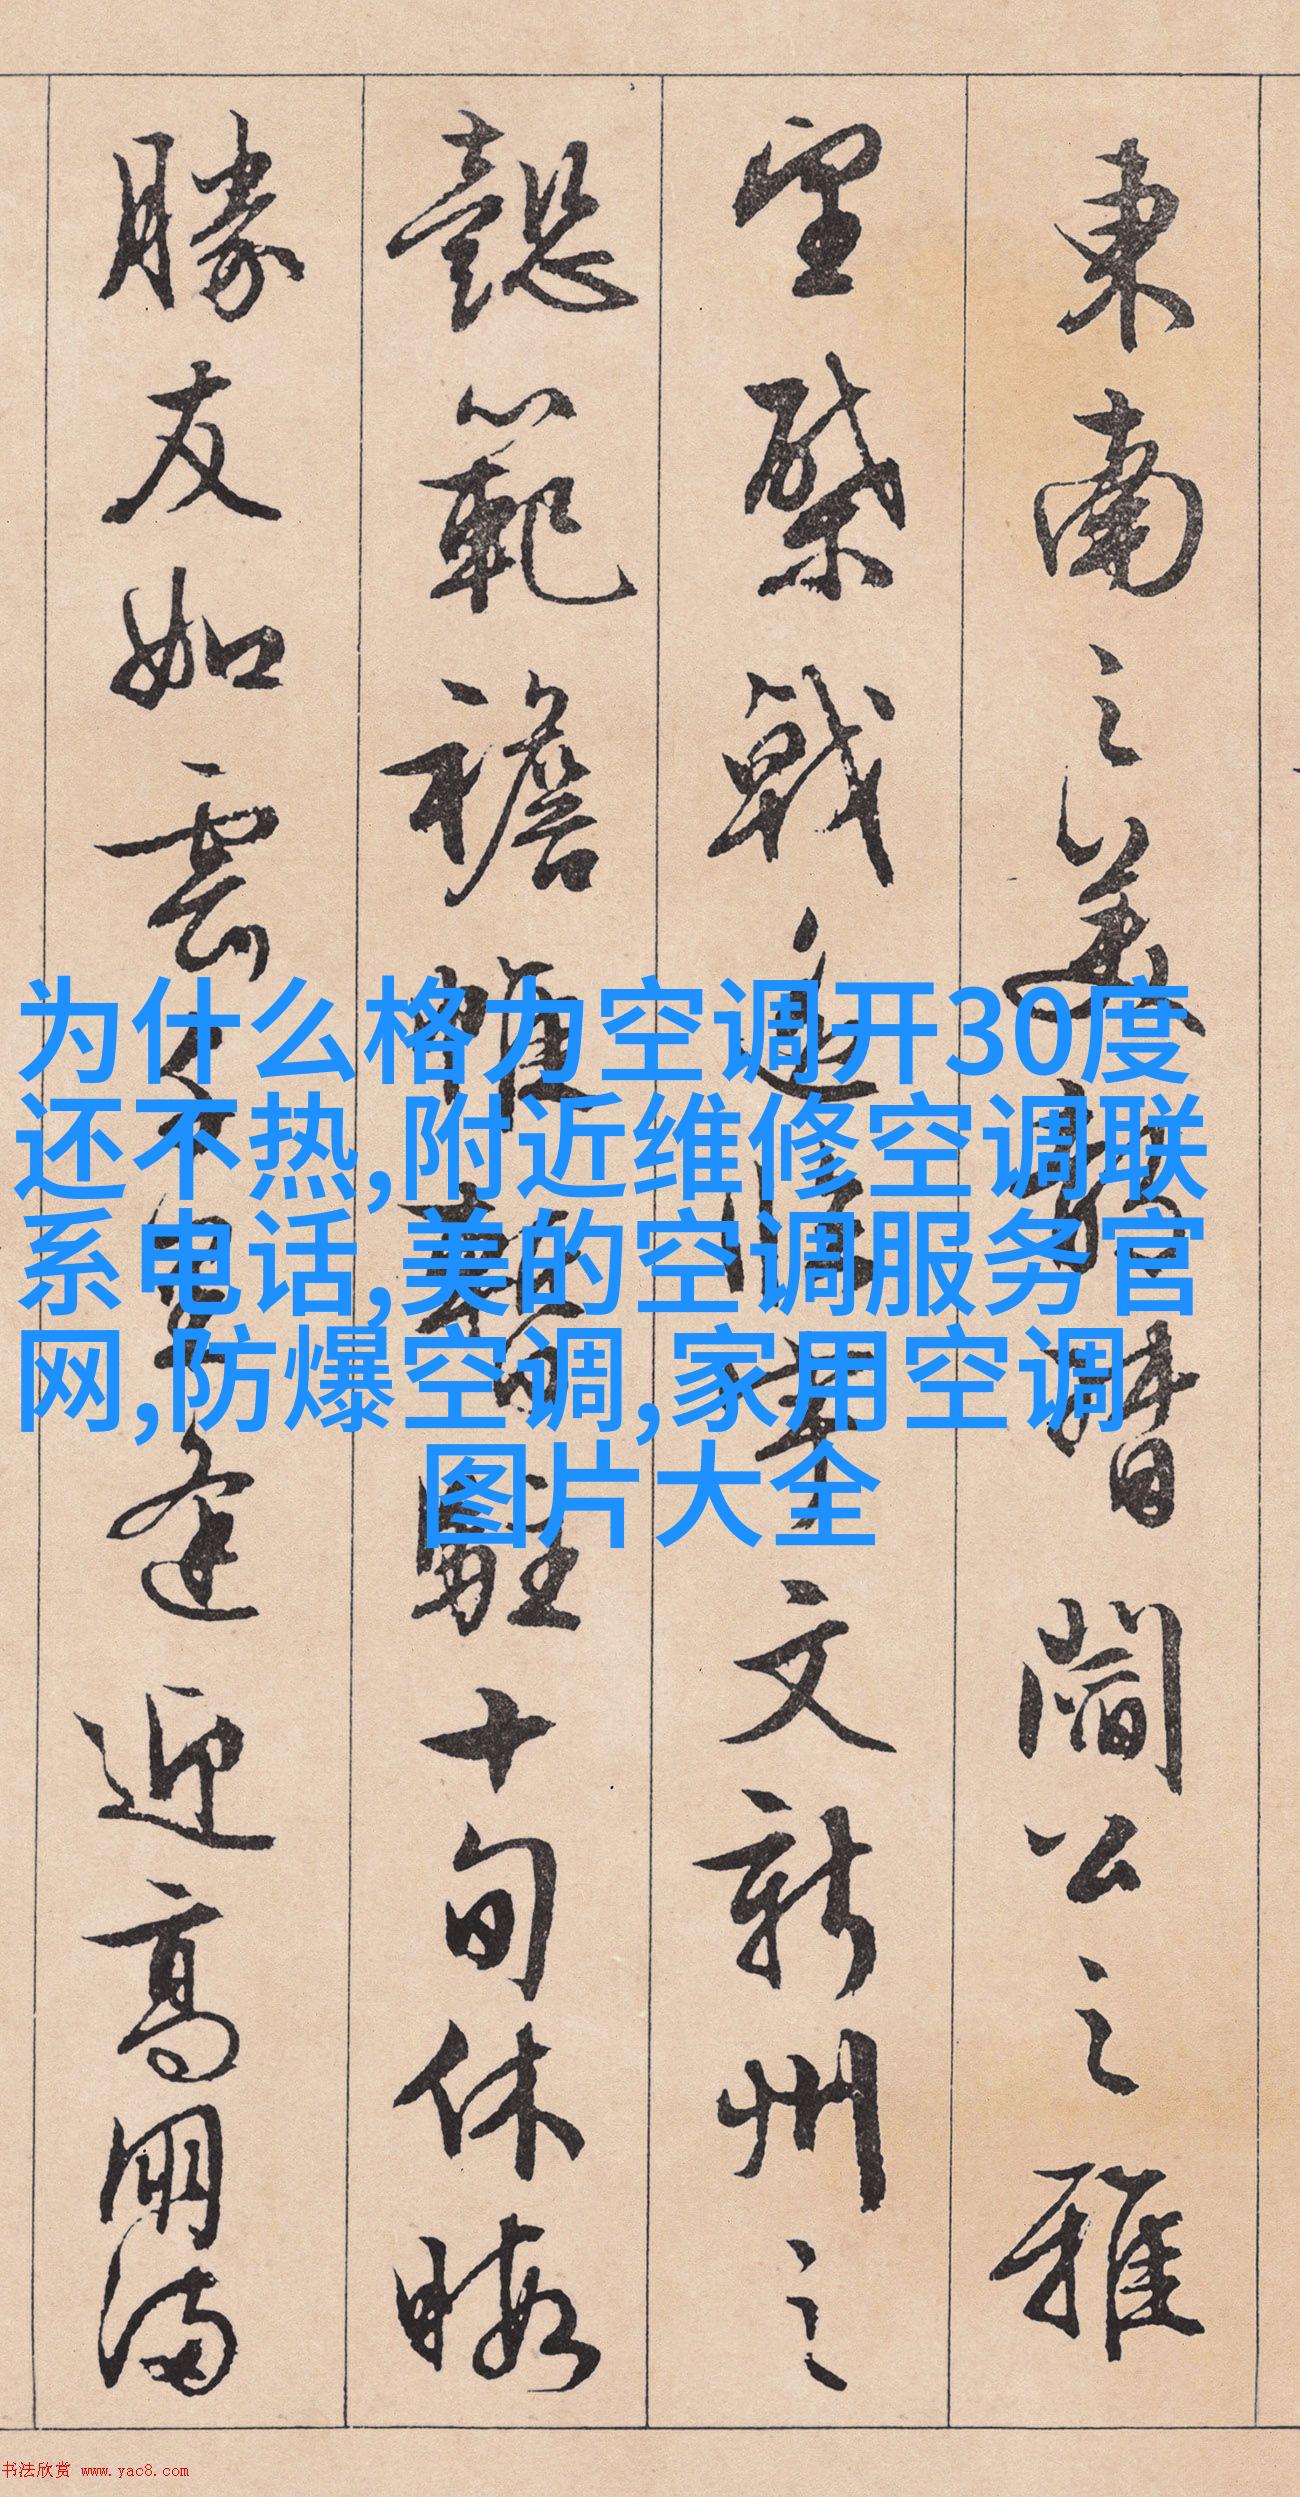 東南之美騏驥晉闇公之雅
望棨戟遙臨宇文新州之
懿範襜帷暫駐十旬休暇
勝友如雲千里逢迎高朋滿
为什么格力空调开30度
还不热,附近维修空调联
系电话,美的空调服务官
网,防爆空调,家用空调
图片大全
书法欣赏 www.yac8.com